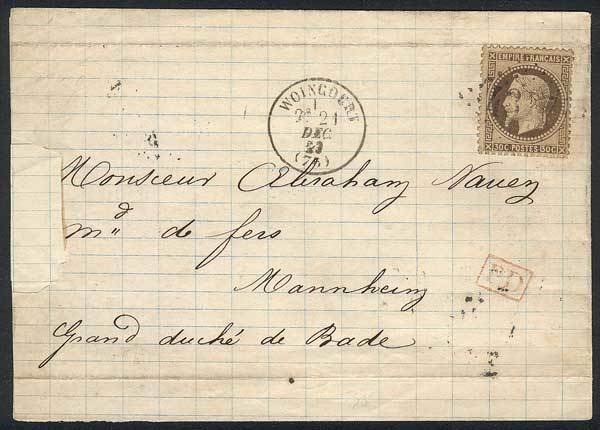 EMPIRE FRANÇAIS
30C POSTES 30C
WOINCOURT
DEC
(76)
Monsieur Abraham Nauen
md de fers
Mannheim
PD
Grand duché de Bade